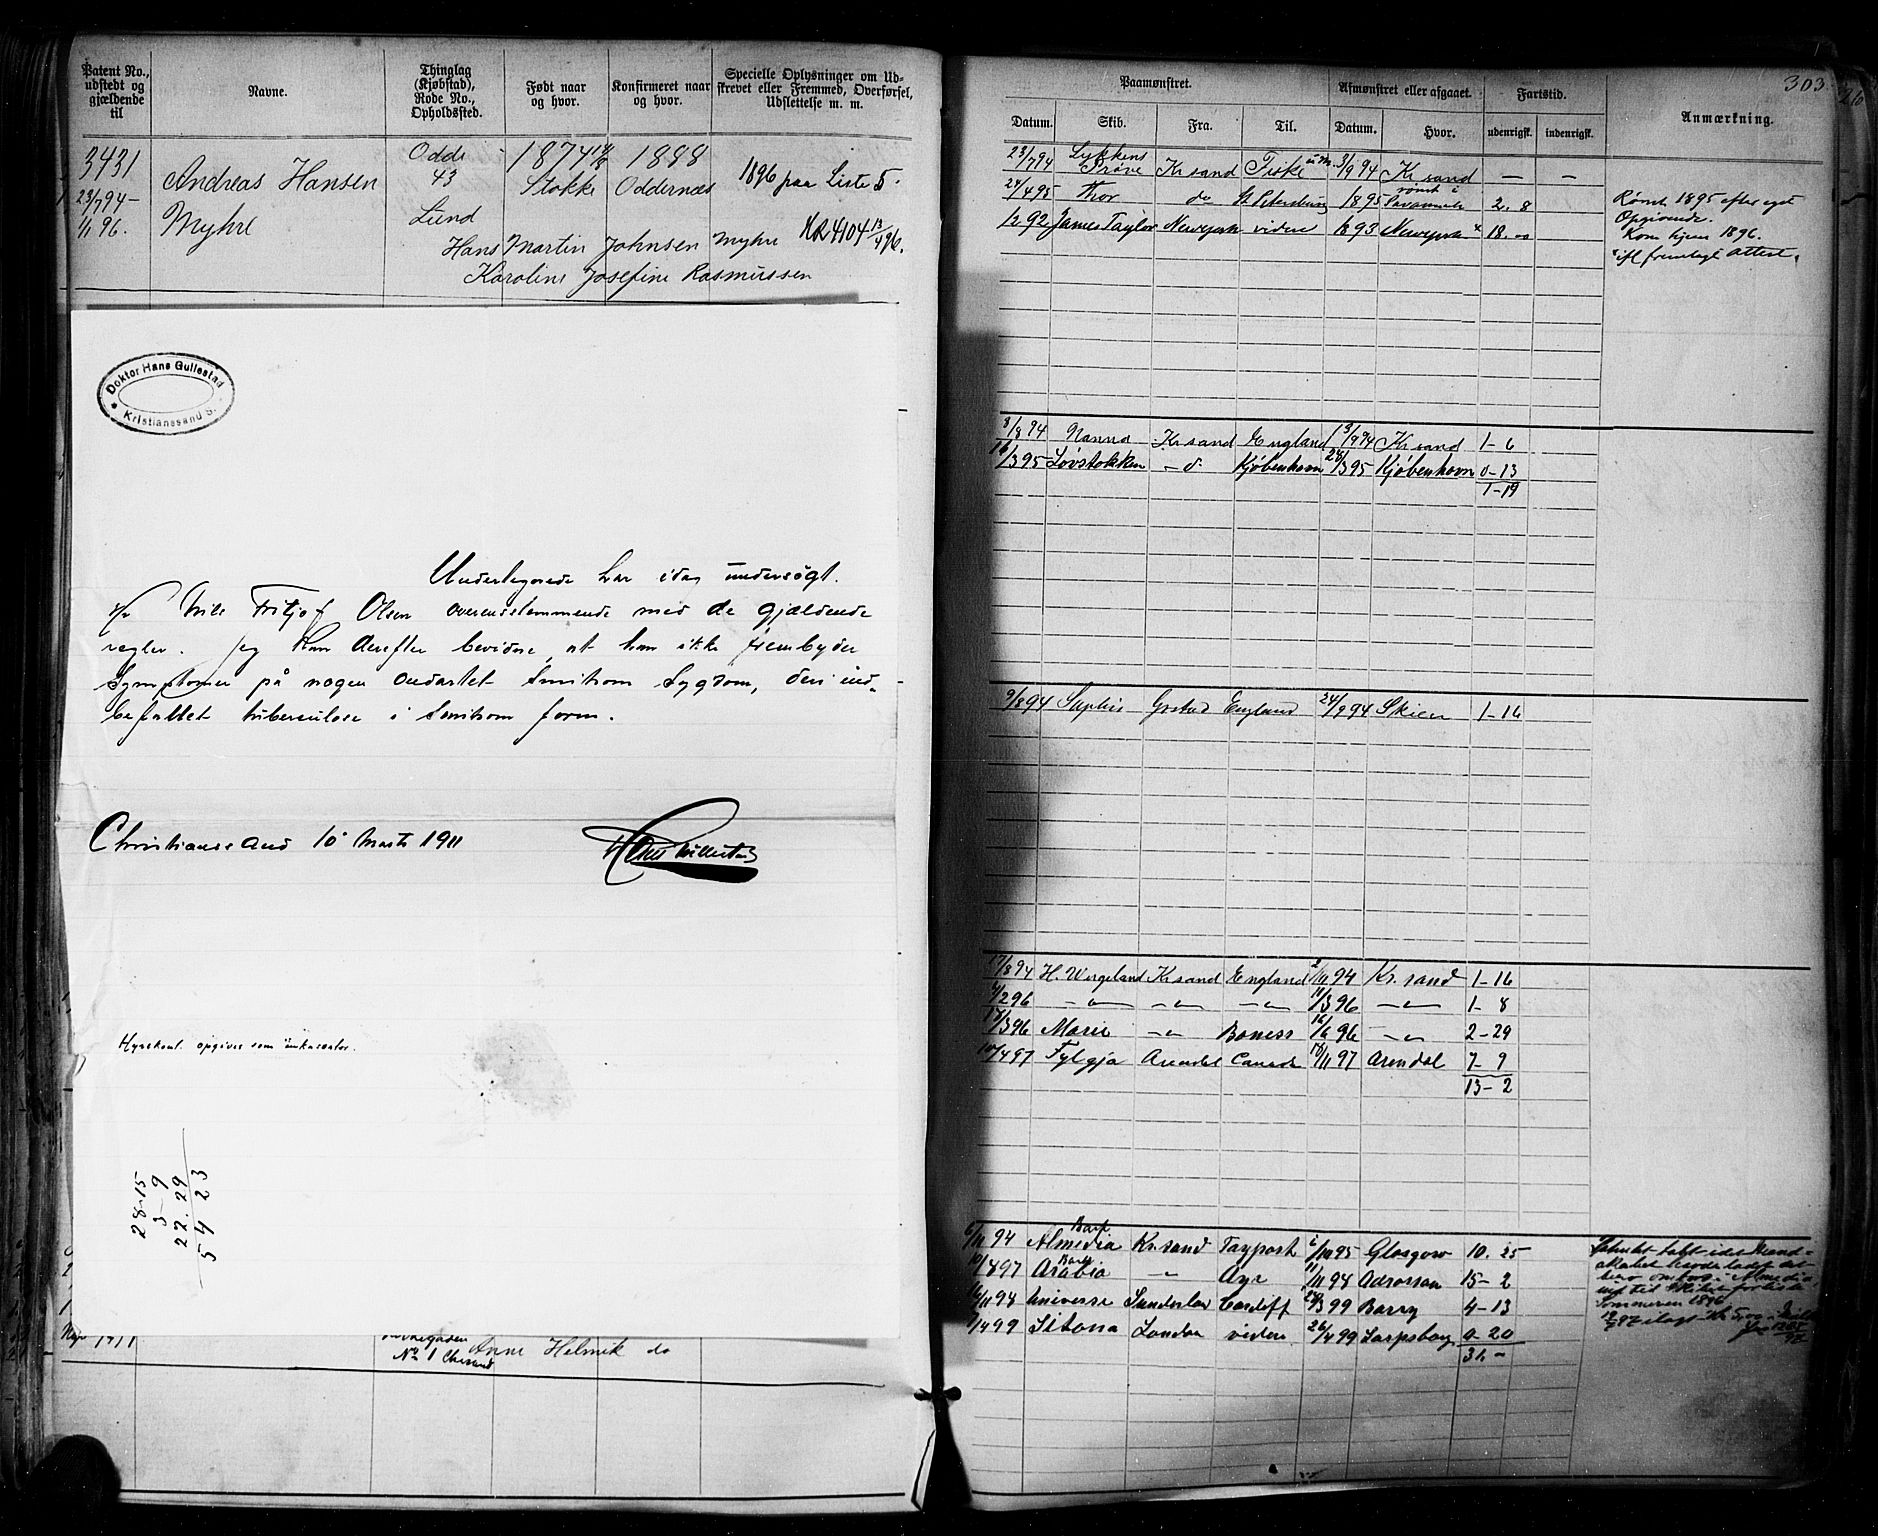 Patent No., udstedt og gjældende til
Navne.
Thinglag (Kjøbstad), Rode No., Opholdssted.
Født naar og hvor.
Konfirmeret naar og hvor.
Specielle Oplysninger om Udskrevet eller Fremmed, Overførsel, Udslettelse m. m.
3431
23/7 94 –
1/1 96.
Andreas Hansen
Myhre
Oddε
43
Lund
1874
Stokke
1888
Oddernæs
1896 paa Liste 5.
4104 13/4 96.
Hans Martin Johnsen Myhre
Karoline Josefine Rasmussen
Doktor Hans Gullestad
Kristianssand S.
Undertegnede har idag undersøgt
Hr Nils Fritjof Olsen overensstemmende med de gjældende
regler. Jeg kan derefter bevidne, at han ikke frembyder
Symptomer på nogen ondartet smitsom Sygdom, deri ind-
befattet tuberculose i smitsom form.
Christianssand 10 Marts 1911
Hans Gullestad
Hyrekont. opgives som
28-15
3- 9
22. 29
54 23
No 1 Chrsand
Anne Helmik do
303
Paamønstret.
Afmønstret eller afgaaet.
Fartstid.
Anmærkning.
Datum. Skib. Fra. Til. Datum. Hvor. udenrigsk. indenrigsk.
23/7 94 Lykkens Prøve Krsand Fiske 3/9 94 Kr sand – –
24/4 95 Thor do St. Petersburg 1895 rømt i 2. 8
12 92 James Taylor Newyork videre 1893 Newyork 18. „
Rømt 1895 efter eget
Opgivende.
Kom hjem 1896.
ifl fremlagt attest.
8/8 94 Nanna Krsand England 13/9 94 Kr sand 1– 6
16/3 95 Løvstakken – d Kjøbenhavn 28/3 95 Kjøbenhavn 0–13
1–19
9/8 94 England 24/9 94 Skien 1–16
17/8 94 H. Wergeland Krsand England 2/10 94 Kr. sand 1–16
4/2 96 –„– –„– –„– 11/3 96 –„– 1– 8
18/3 96 Marie –„– Boness 16/6 96 –„– 2–29
10/4 97 Fylgja Arendal Canada 18/11 97 Arendal 7– 9
13– 2
6/11 94 Bark Almedia Kr.sand Tayport 6/10 95 Glasgow 10. 25
10/8 97 Bark Arabia –„– Ayr 11/11 98 Adrossan 15– 2
16/11 98 Universe Sunderland Cardiff 28/3 99 Barry 4–13
7/4 99 Sitona London videre 26/4 99 Sarpsborg 0–20
31. –
Sommeren 1896